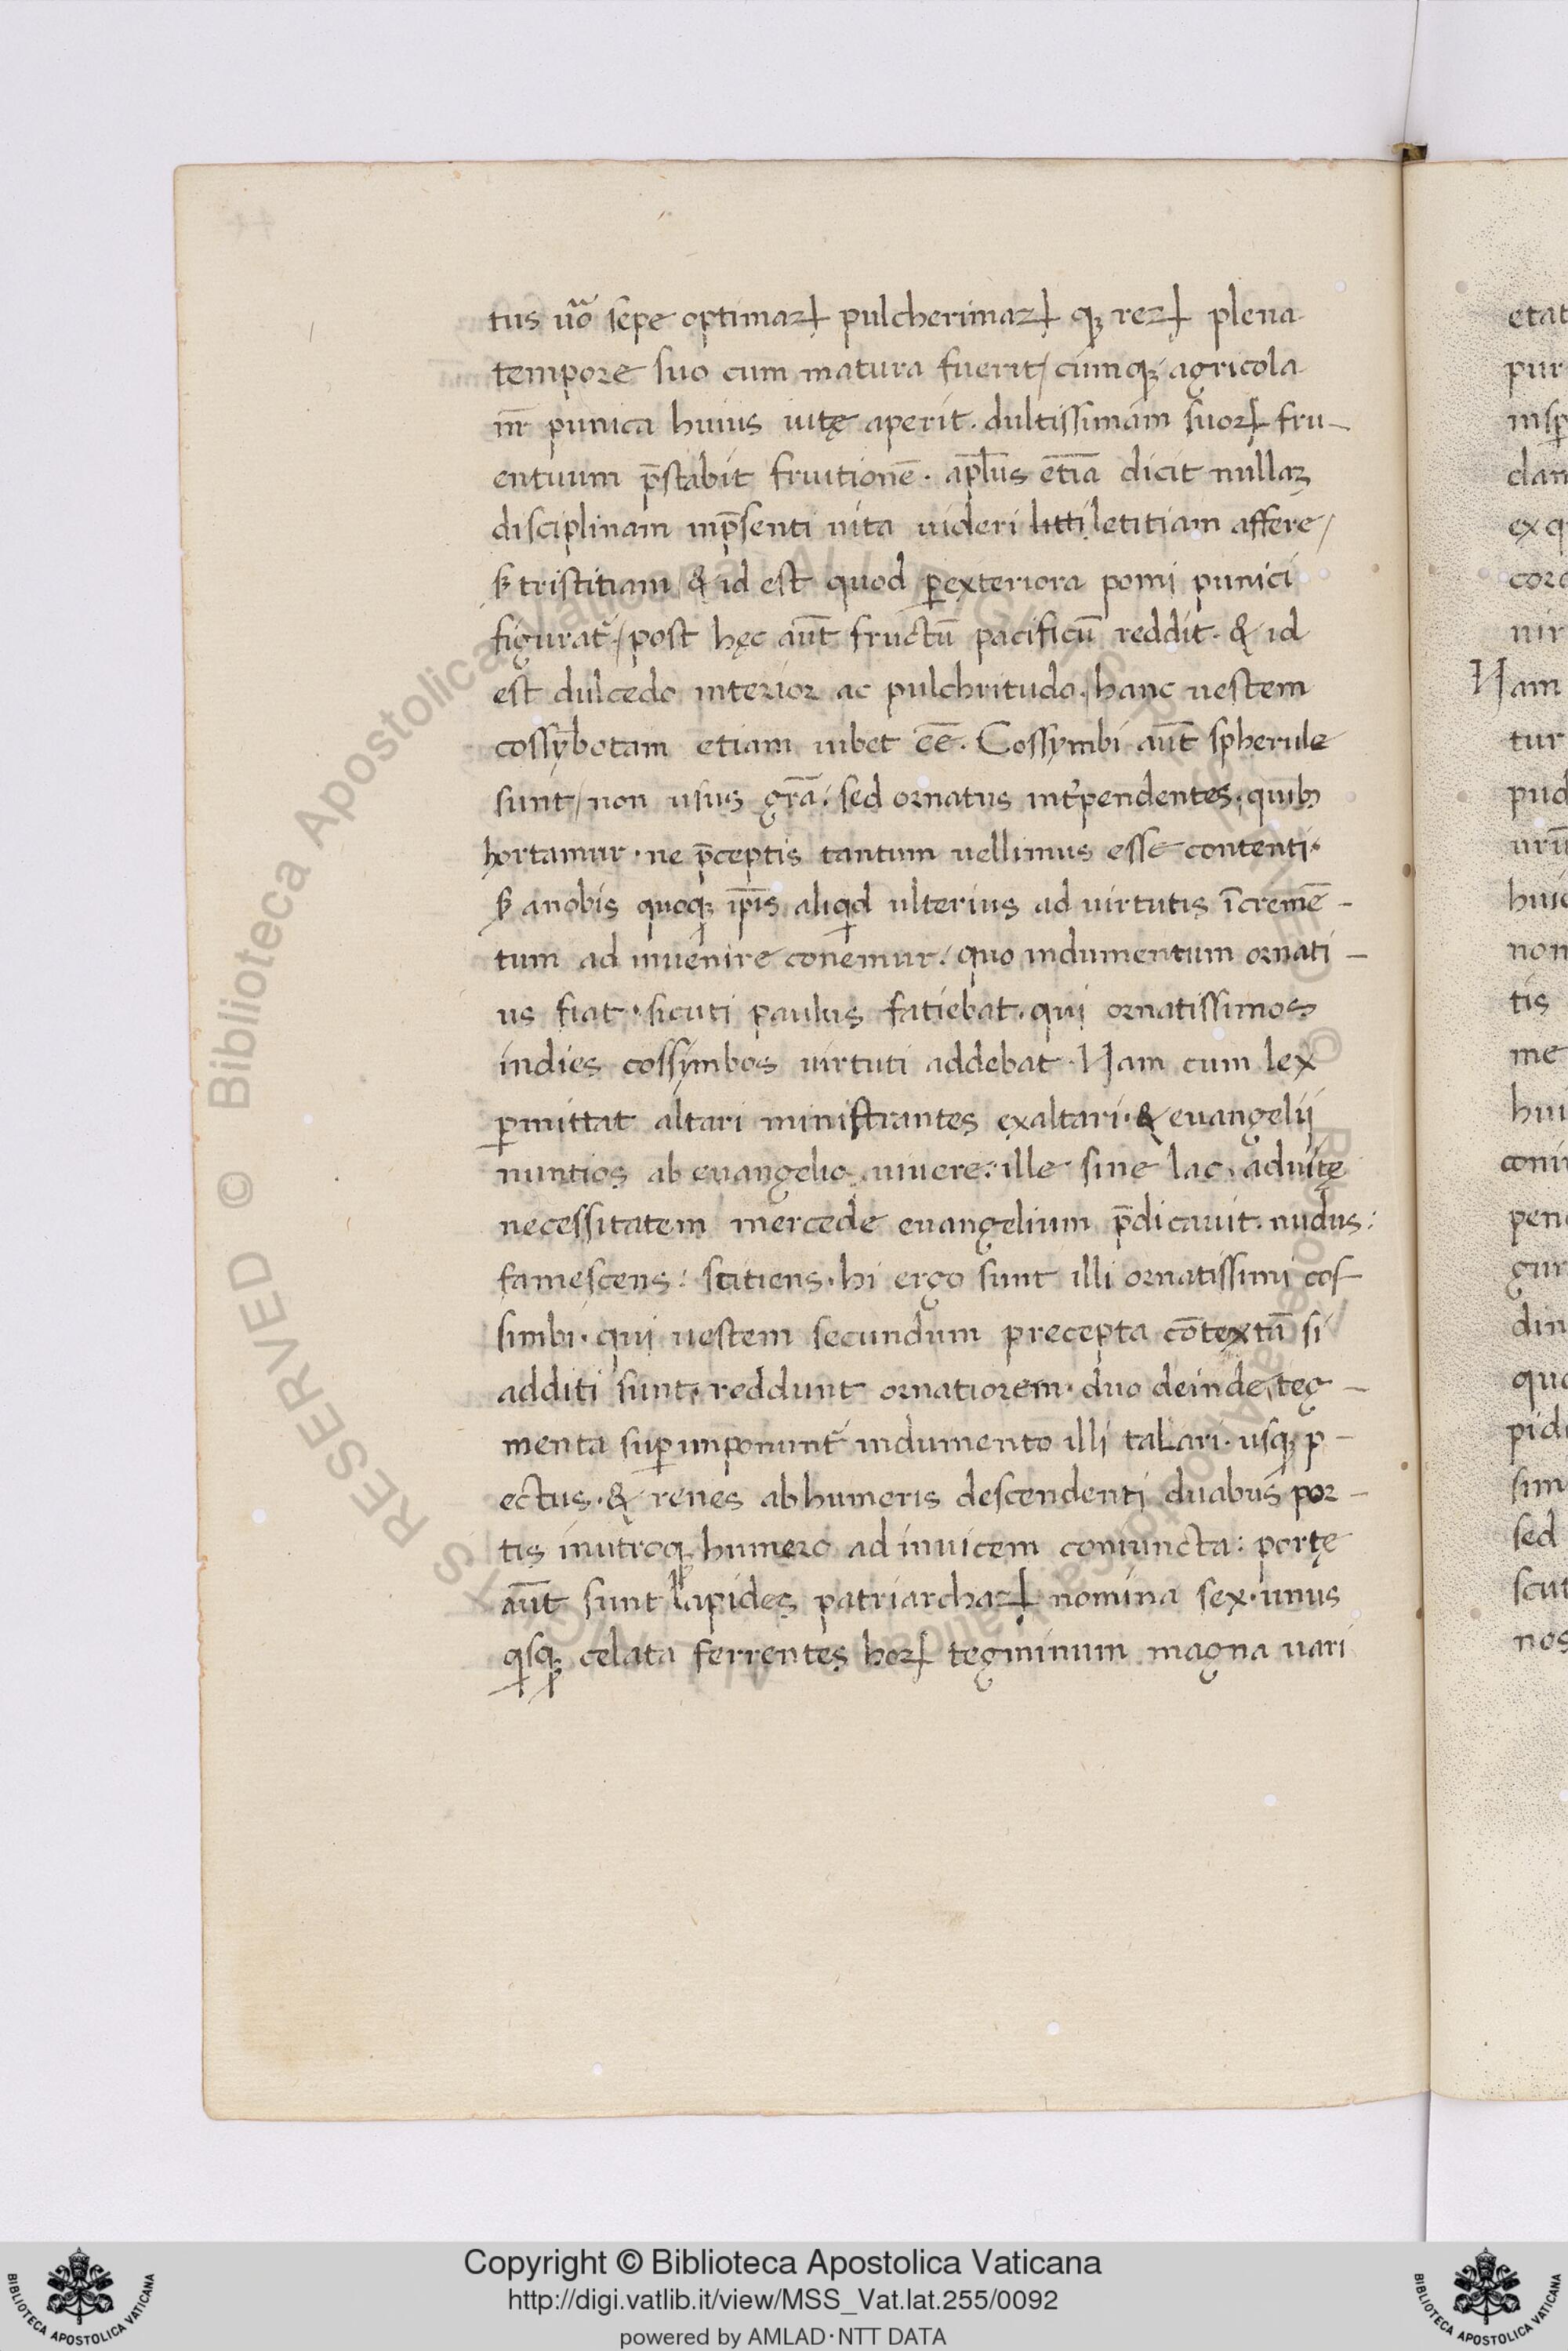 tus ũo sepe optimaꝝ pulcherimaꝝ qꝫ reꝝ plena
tempore suo cum matura fuerit / cumqꝫ agricola
nr̄ punica huius uitę aperit. dultissimam suoꝝ fru-
entuum p̄stabit fruitionē. apl̄us etiā dicit nullaꝫ
disciplinam inp̄senti uita uideri letitiam affere /
sꝫ tristitiam / & id est quod ꝑexteriora pomi punici
figurat᷑. / post hęc aūt fructū pacificū reddit. & id
est dulcedo interior ac pulchritudo. hanc uestem
cossȳbotam etiam iubet eē̄. Cossymbi aūt spherule
sunt / non usus gr̄a. sed ornatus int᷑pendentes. quibꝫ
hortamur. ne p̄ceptis tantum uellimus esse contenti.
sꝫ anobis quoqꝫ ip̄is aliqd ulterius ad uirtutis īcremē-
tum ad inuenire conemur. quo indumentum ornati-
us fiat. sicuti paulus fatiebat. qui ornatissimos
indies cossymbos uirtuti addebat. Nam cum lex
ꝑmittat altari ministrantes exaltari. & euangelij
nuntios ab euangelio uiuere: ille sine lac aduitę
necessitatem mercede euangelium p̄dicauit. nudus:
famescens: scitiens. hi ergo sunt illi ornatissimi cos-
simbi. qui uestem secundum precepta cōtextā si
additi sunt. reddunt ornatiorem. duo deinde teg-
menta suꝑimponunt᷑ indumento illi talari. usqꝫ p-
ectus. & renes abhumeris descendenti duabus por-
tis inutroqꝫ humero ad inuicem coniuncta: portę
aūt sunt lapides patriarchaꝝ nomina sex. unus
qisqꝫ celata ferrentes hoꝝ tegminum magna uari
etat
pur
insp
dan
ex q
coro
nir
Nam
tur
pud
urū
huic
non
tis
me
hui
coniu
pend
gur
din
quo
pid
sim
sed
scut
nos
© Biblioteca Apostolica Vaticana ALL RIGHTS RESERVED
Copyright © Biblioteca Apostolica Vaticana
http://digi.vatlib.it/view/MSS_Vat.lat.255/0092
powered by AMLAD·NTT DATA
BIBLIOTECA APOSTOLICA VATICANA
BIBLIOTECA APOSTOLICA VATICANA